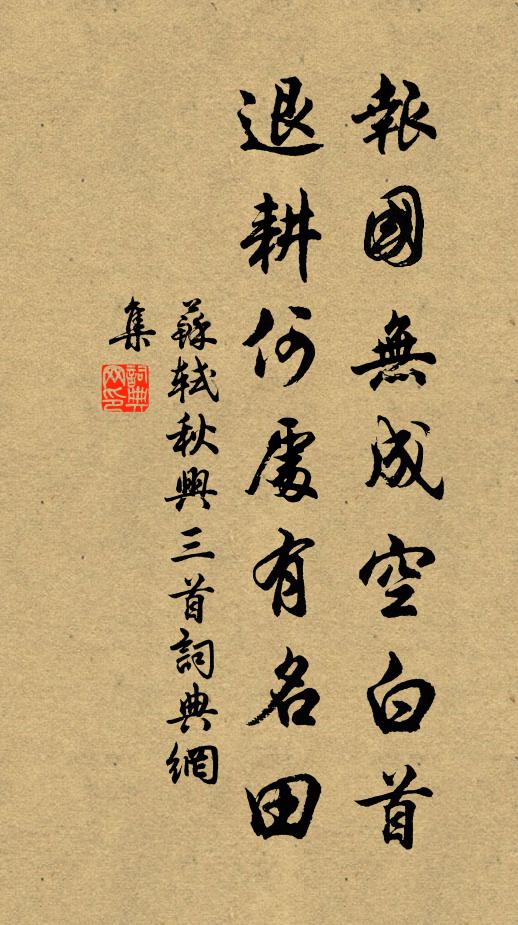 報國無成空白首
退耕何處有名田
蘇軾秋興三首詞典網
集
詞典
网印